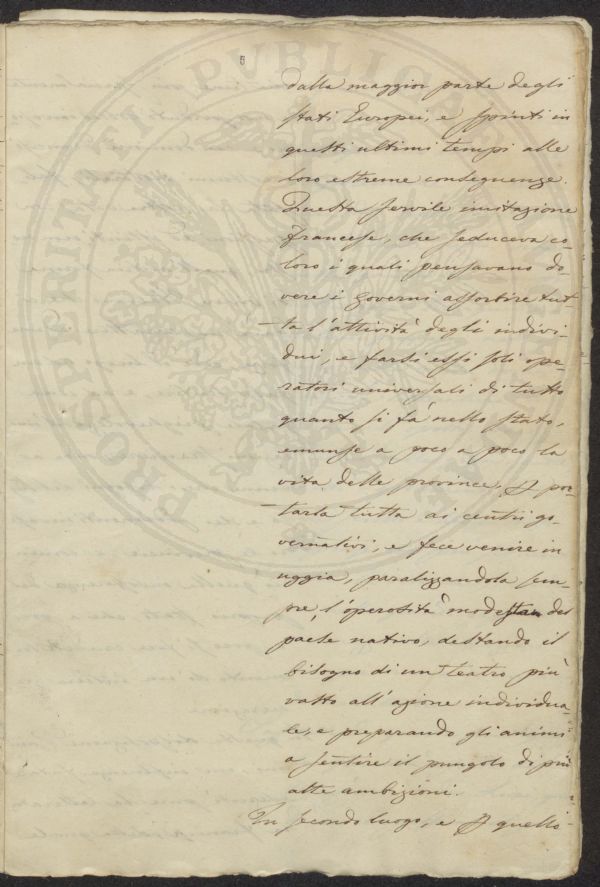 PROSPERITATI PVBLICAE
dalla maggior parte degli
stati Europei, e spinti in
questi ultimi tempi alle
loro estreme conseguenze.
Questa servile imitazione
francese, che seduceva co-
loro i quali pensavano do-
vere i governi assorbire tut-
ta l'attività degli indivi-
dui, e farsi essi soli ope-
ratori universali di tutto
quanto si fà nello stato,
emunse a poco a poco la
vita delle province, p por-
tarla tutta ai centri go-
vernativi, e fece venire in
uggia, paralizzandola sem-
pre, l'operosità modesta del
paese nativo, destando il
bisogno di un teatro più
vasto all'azione individua-
le, e preparando gli animi
a sentire il pungolo di più
alte ambizioni.
In secondo luogo, e p quello